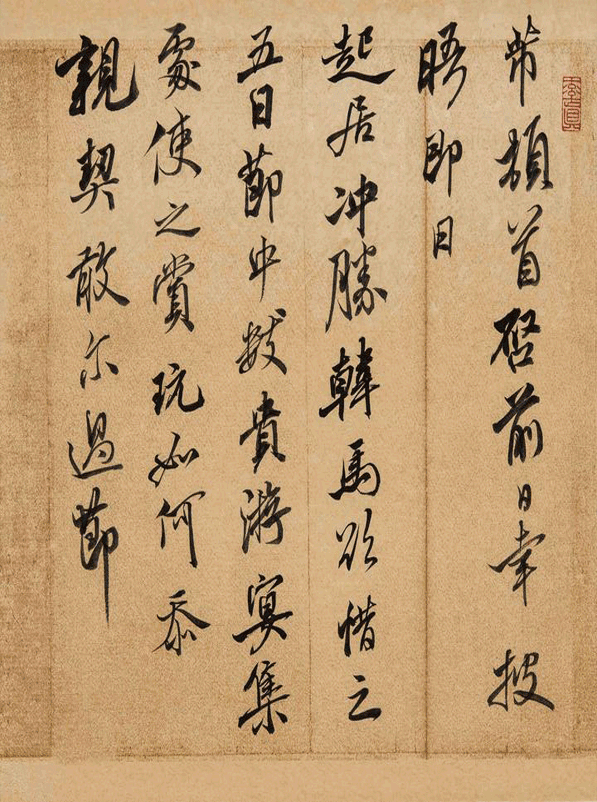 芾頓首啓前日幸披
晤即日
起居冲勝韓馬欲借之
五日節中數貴游宴集
處使之賞玩如何忝
親契敢尔過節